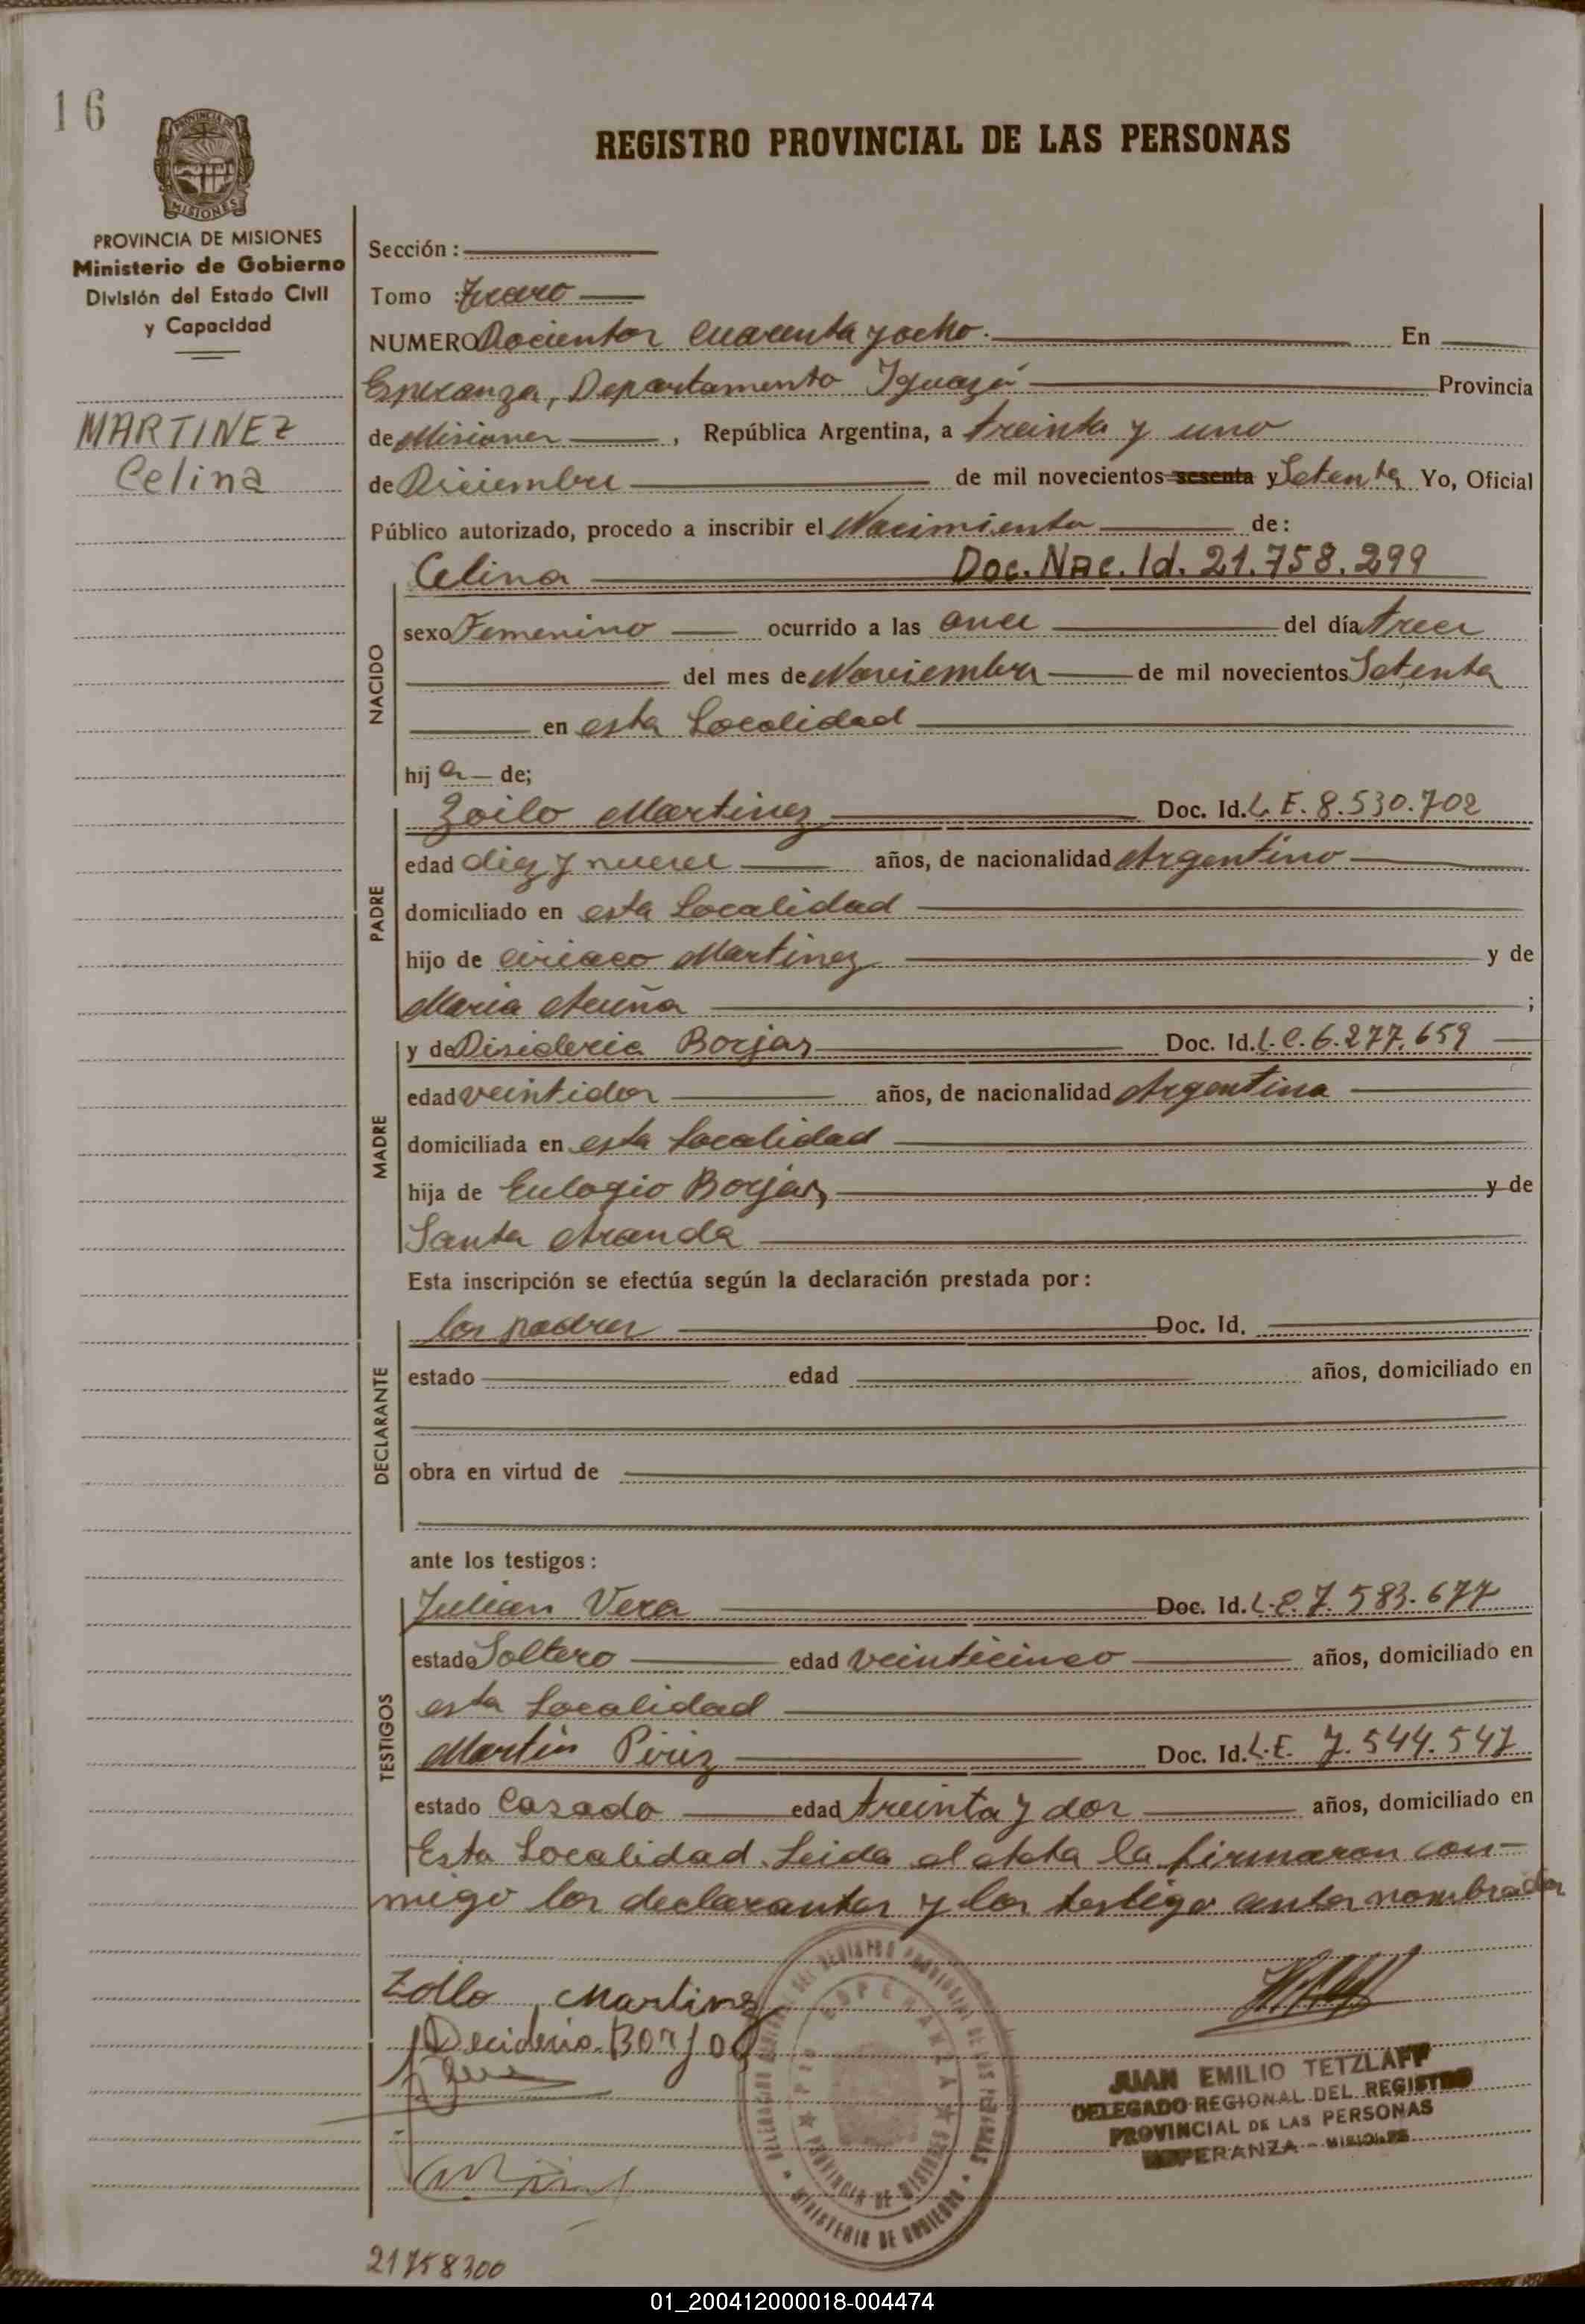 16
PROVINCIA DE
MISIONES
PROVINCIA DE MISIONES
Ministerio de Gobierno
División del Estado Civil
y Capacidad
MARTINEZ
Celina
REGISTRO PROVINCIAL DE LAS PERSONAS
Sección :
Tomo :
NUMERO Docientos cuarenta y ocho. En
Esperanza, Departamento Iguazú Provincia
de Misiones , República Argentina, a treinta y uno
de Diciembre de mil novecientos sesenta y Setenta Yo, Oficial
Público autorizado, procedo a inscribir el Nacimiento de:
Celina Doc. Nac. Id. 21.758.299
NACIDO
sexo Femenino ocurrido a las once del día trece
del mes de Noviembre de mil novecientos Setenta
en esta Localidad
hij a de;
PADRE
Zoilo Martinez Doc. Id. L.E. 8.530.702
edad diez y nueve años, de nacionalidad Argentino
domiciliado en esta Localidad
hijo de Ciriaco Martinez y de
Maria Acuña ;
MADRE
y de Disideria Borjas Doc. Id. L.C. 6.277.659
edad veintidos años, de nacionalidad Argentina
domiciliada en esta Localidad
hija de Eulogio Borjas, y de
Santa Aranda
Esta inscripción se efectúa según la declaración prestada por :
DECLARANTE
los padres Doc. Id.
estado edad años, domiciliado en
obra en virtud de
ante los testigos :
TESTIGOS
Julian Vera Doc. Id. L.E. 7.583.677
estado Soltero edad veinticinco años, domiciliado en
esta Localidad
Martin Piriz Doc. Id. L.E. 7.544.547
estado Casado edad treinta y dos años, domiciliado en
Esta Localidad. Leida el Acta la firmaron con-
migo los declarantes y los testigo antes nombrados
Zoilo Martinez
Decideria Borjas
JUAN EMILIO TETZLAFF
DELEGADO REGIONAL DEL REGISTRO
PROVINCIAL DE LAS PERSONAS
ESPERANZA - MISIONES
PROVINCIA DE MISIONES
MINISTERIO DE GOBIERNO
21758300
01_200412000018-004474